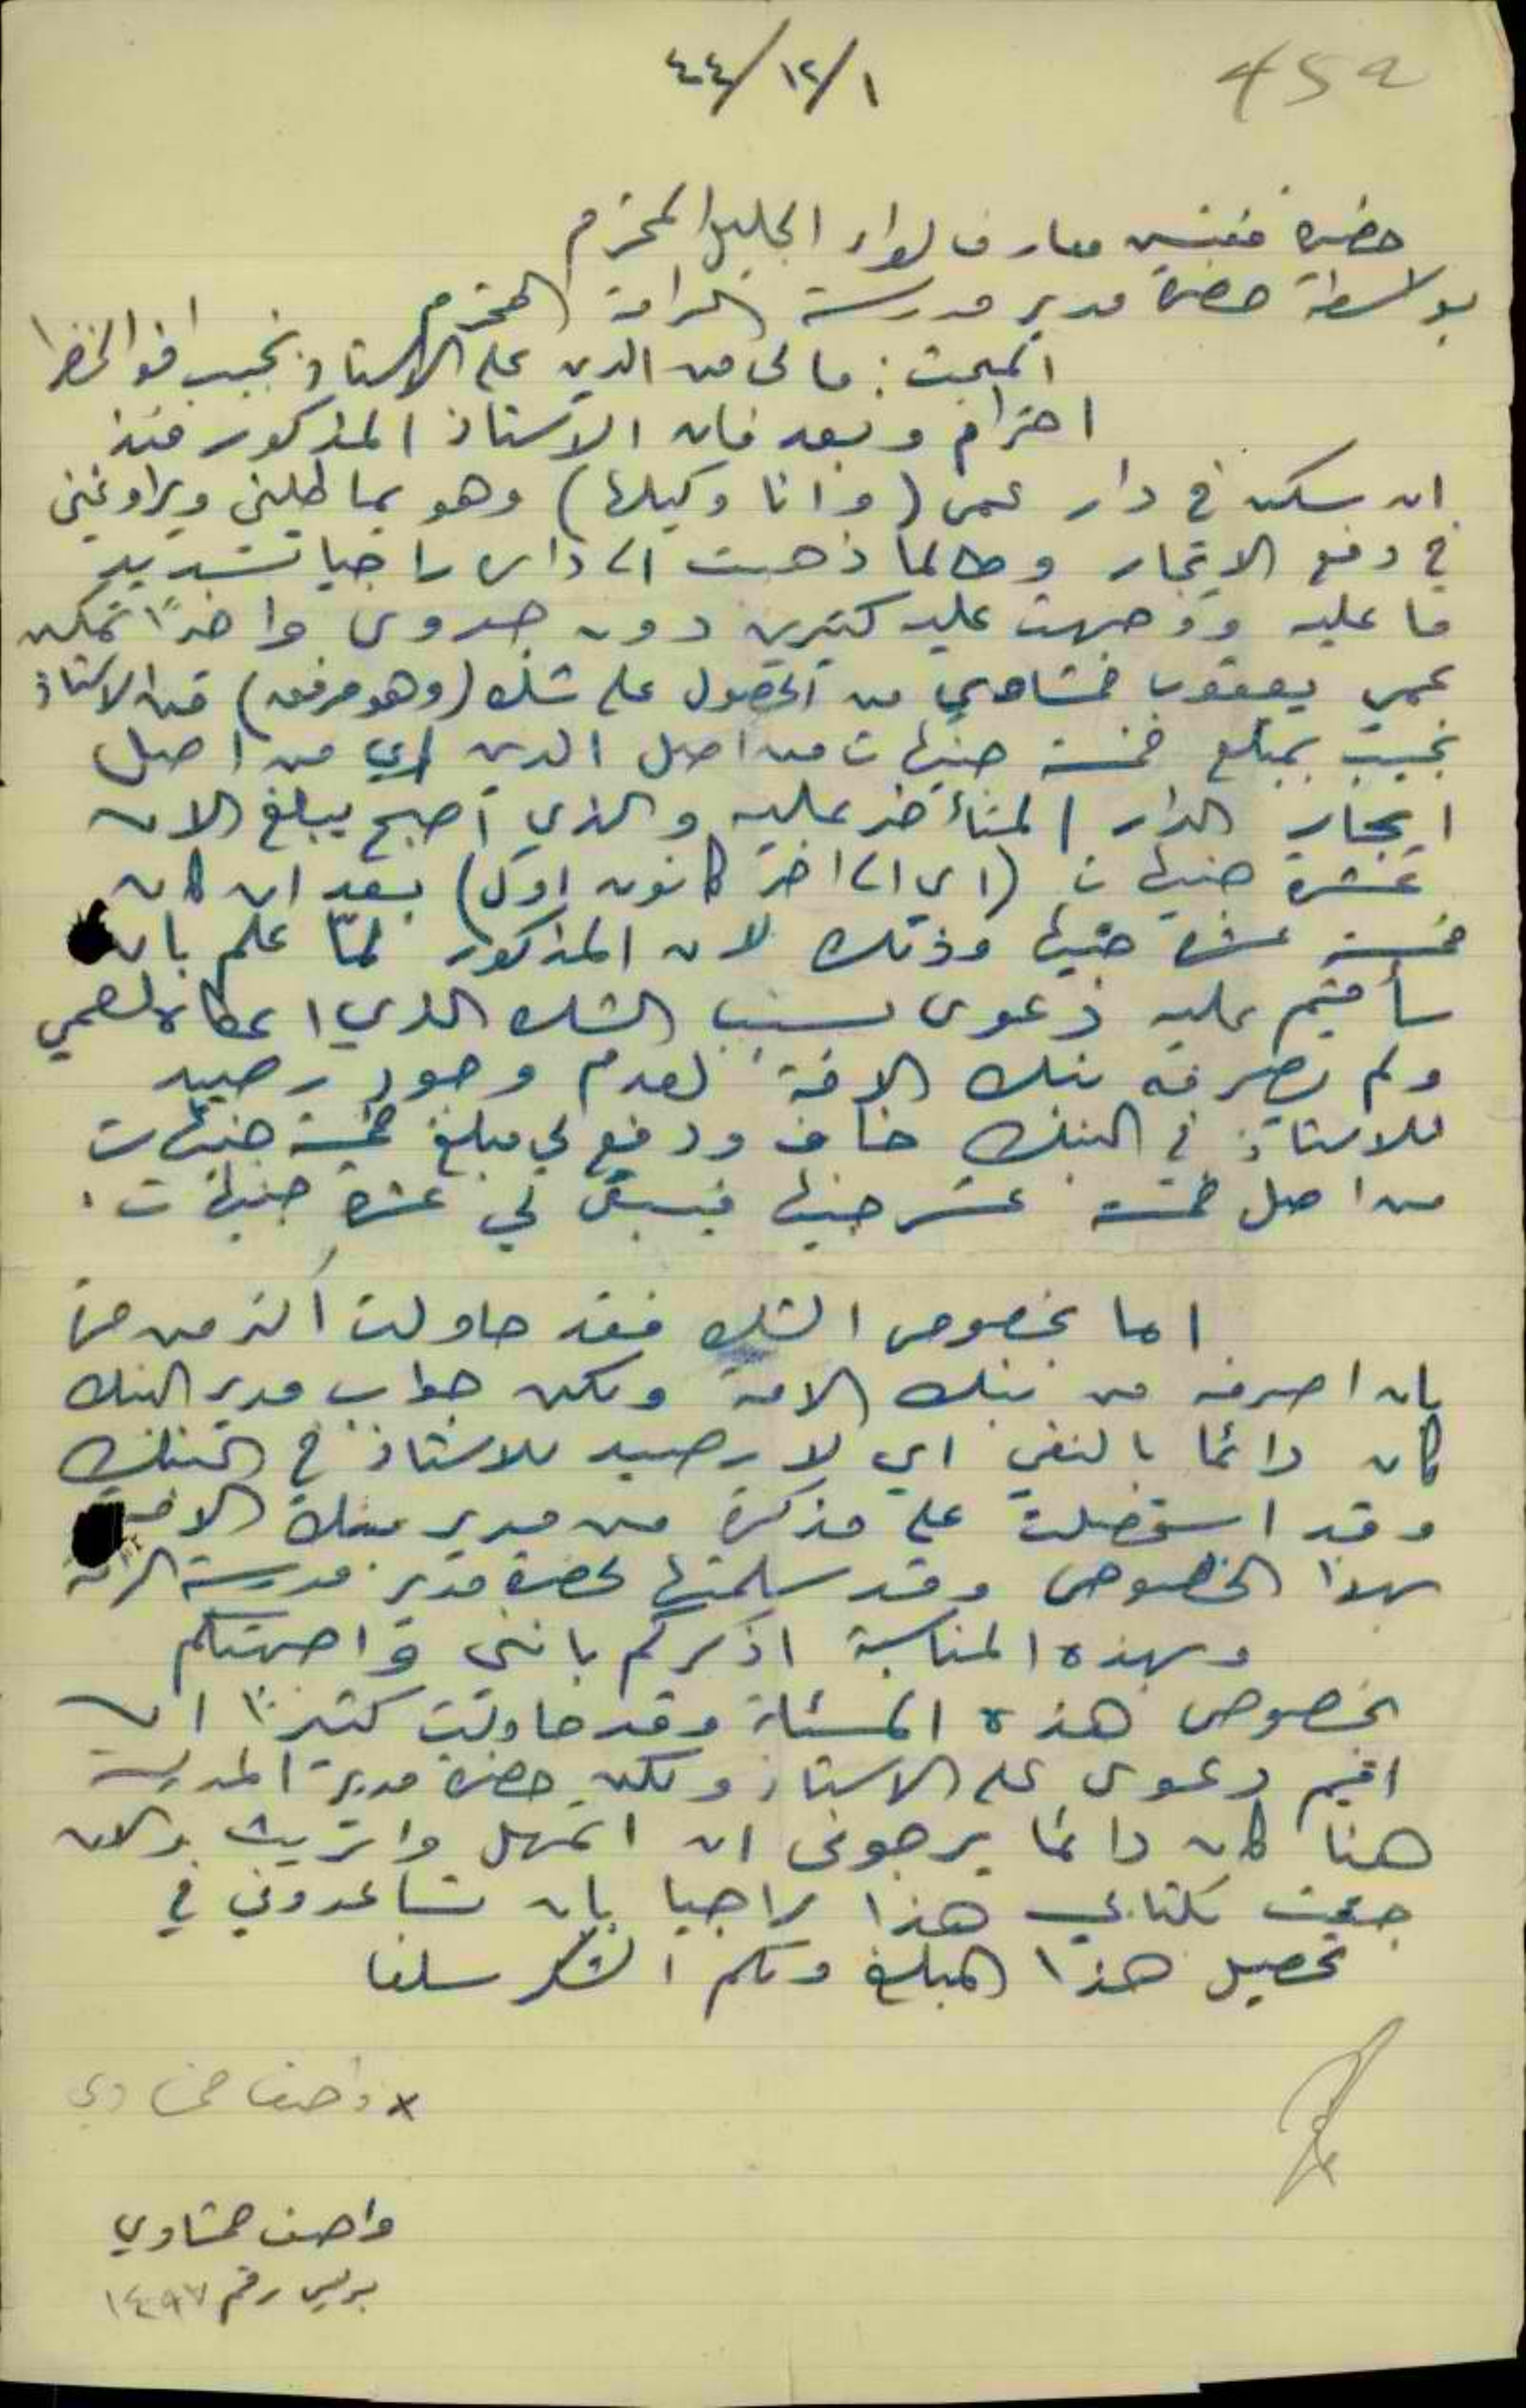 45a
٤٤/١٢/١
حضرة مفتش معارف لواء الجليل المحترم
بواسطة حضرة مدير مدرسة الرامة المحترم
المبحث: مالي من الدين على الاستاذ نجيب
احترام وبعد فان الاستاذ المذكور منذ
ان سكن في دار عمي (وانا وكيلها) وهو يماطلني ويراوغني
في دفع الايجار وطالما ذهبت الى داره راجيا تسديد
ما عليه ووجهت عليه كثيرين دون جدوى واخيرًا تمكن
عمي يعقوب من الحصول على شك (وهو مرفق) من الاستاذ
نجيب بمبلغ خمسة جنيهات من اصل الدين اي من اصل
ايجار الدار المتأخر عليه والذي اصبح يبلغ الان
عشرة جنيهات (اي الى اخر كانون اول) بعد ان كان
خمسة عشرة جنيها وذلك لان المذكور لمّا علم بان
سأقيم عليه دعوى بسبب الشك الذي اعطاه لعمي
ولم يصرفه بنك الامة لعدم وجود رصيد
للاستاذ في البنك خاف ودفع لي مبلغ خمسة جنيهات
من اصل خمسة عشر جنيها فيبقى لي عشرة جنيهات.
اما بخصوص الشك فقد حاولت اكثر من مرة
بان اصرفه من بنك الامة ولكن جواب مدير البنك
كان دائما بالنفي اي لا رصيد للاستاذ في البنك
وقد استحصلت على مذكرة من مدير بنك الامة
بهذا الخصوص وقد سلمتها لحضرة مدير مدرسة الرامة
وبهذه المناسبة اذكركم بانني واجهتكم
بخصوص هذه المسئلة وقد حاولت كثيرًا ان
اقيم دعوى على الاستاذ ولكن حضرة مدير المدرسة
هنا كان دائما يرجوني ان اتمهل واتريث والان
جئت بكتابي هذا راجيا بان تساعدوني في
تحصيل هذا المبلغ ولكم الشكر سلفا
x واصف
واصف خشاوي
بوليس رقم ١٤٩٧